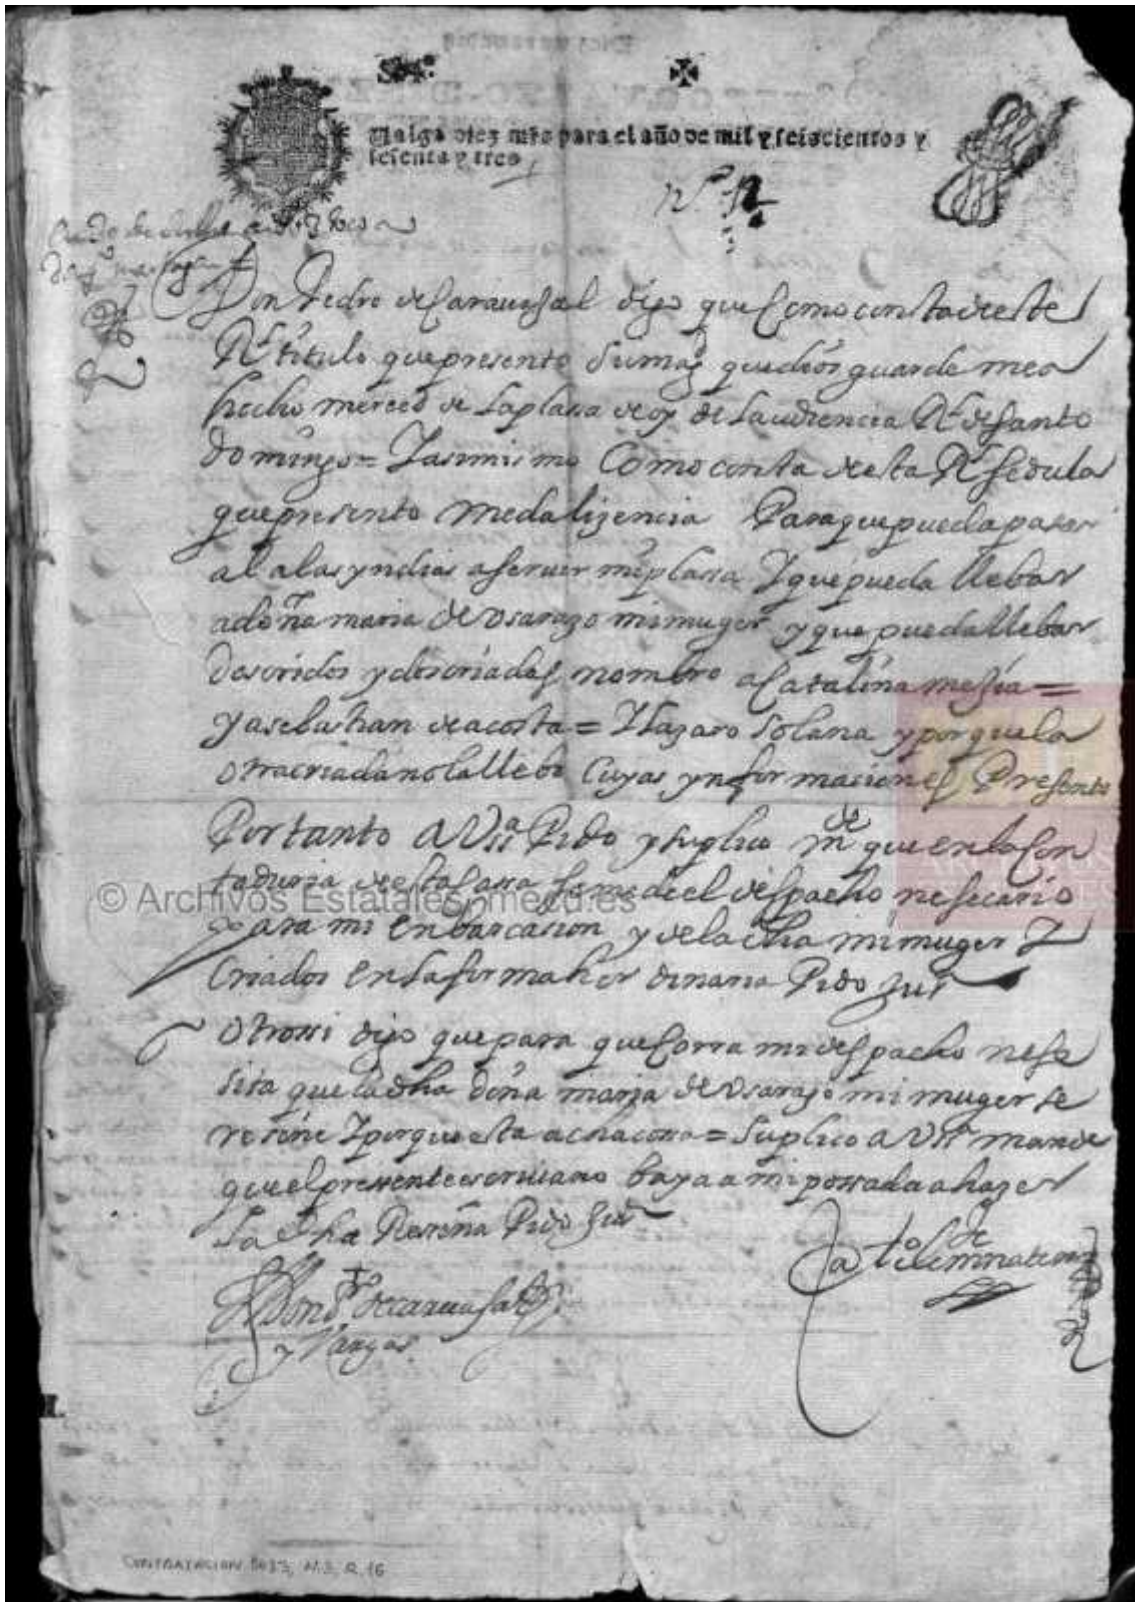 Valga diez mrs para el año de mil y seiscientos y
sesenta y tres
Don Pedro de Carauajal digo que Como consta deeste
Rl titulo que presento Su magd que dios guarde mea
hecho merced de la plasa de oyor de la audiencia Rl de Santo
domingo = Y asimismo Como consta de esta Rl Sedula
que presento me da lisencia Para que pueda pasar
al alas yndias a seruir mi plasa Y que pueda llebar
a doña maria de Osarazo mi muger y que pueda llebar
dos cridos y dos criadas nombro a Catalina mesia =
y a sebastian de acosta = Y Lazaro Solana y porque la
otra criada no la llebo Cuyas ynformasiones Presento
Por tanto a Vssa Pido y suplico mde que en la Con
taduria de esta Casa se me de el despacho nesesario
para mi enbarcasion y de la dha mi muger Y
Criados en la forma hordinaria Pido Justa
Otrossi digo que para que Corra mi despacho nese
sita que la dha doña maria de Osarazo mi muger se
reseñe Y porque esta achacosa = Suplico a Vssa mande
que el pressente escriuano baya a mi possada a hazer
La dha Reseña Pido Justa
Don Po de carauajal
y Vargas
© Archivos Estatales, mecd.es
CONTRATACION 5433, N.3, R.16